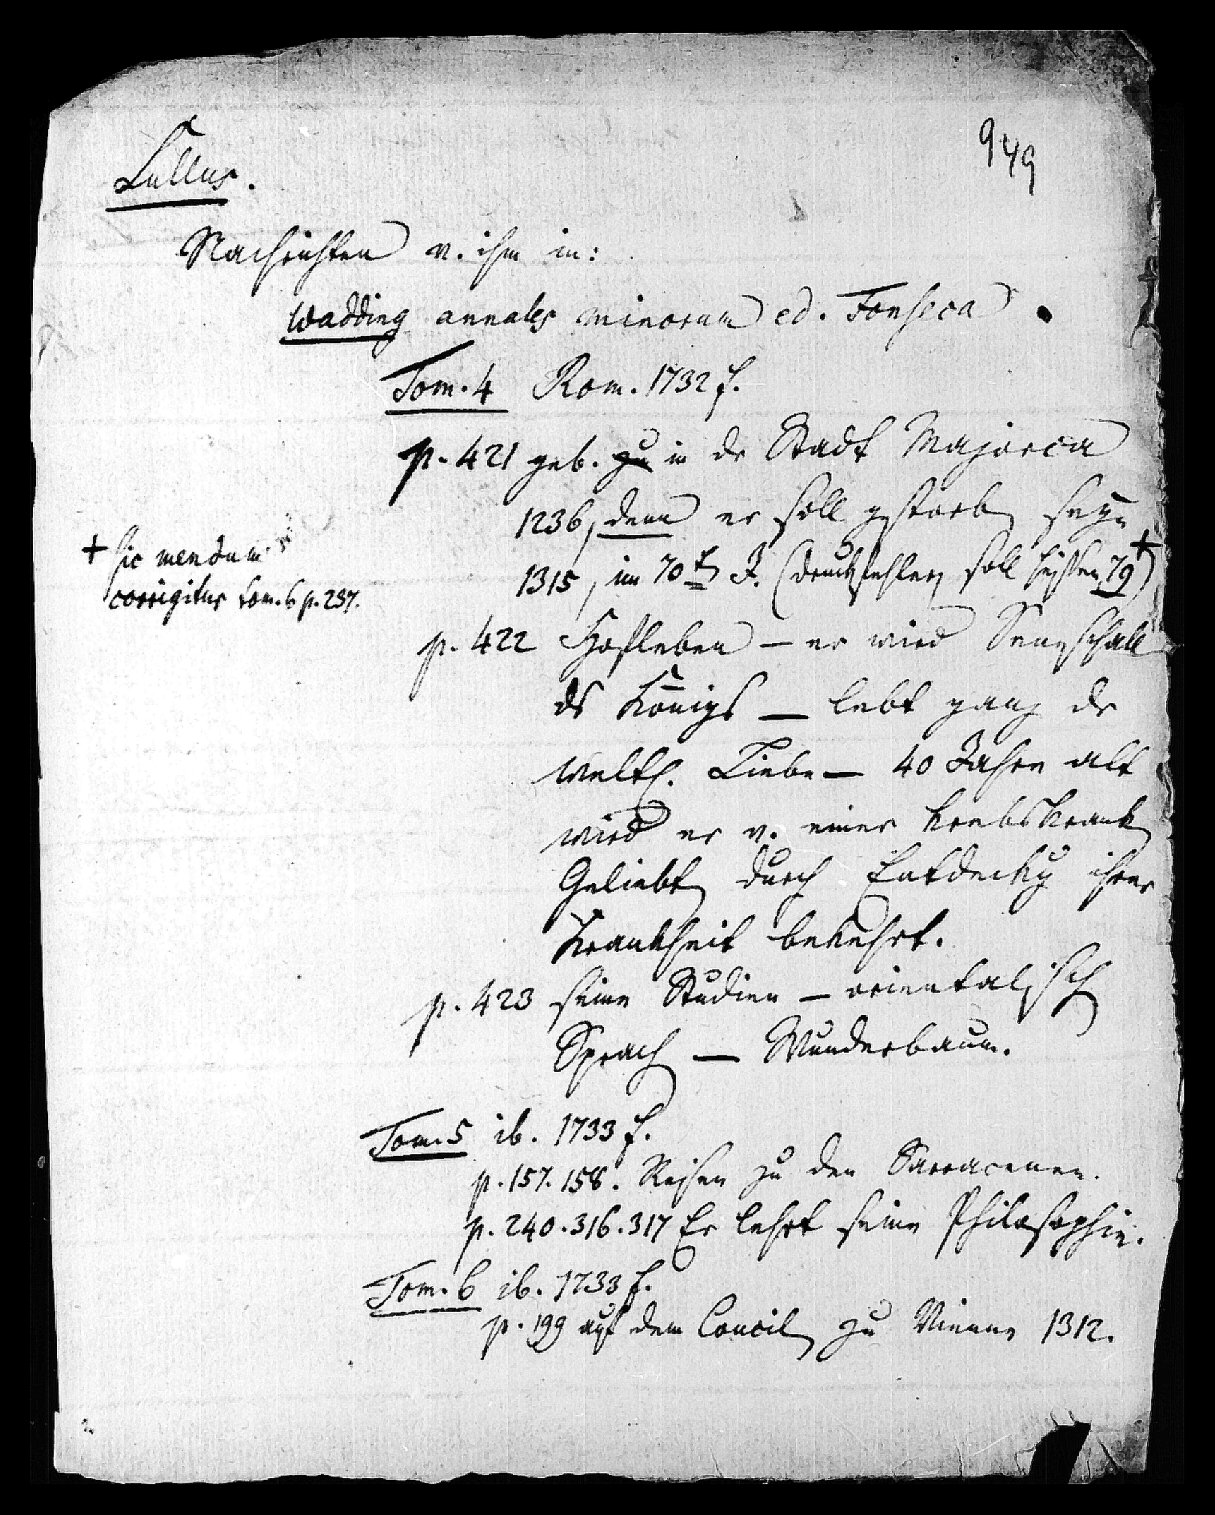 949
Lullus.
Nachrichten v. ihm in:
Wadding annales minorum ed. Fonseca.
Tom. 4 Rom. 1732 f.
p. 421 geb. zu in dr Stadt Majorca
1236, denn er soll gestorben seyn
1315, im 70t J. (Druckfehler, soll heissen 79+)
+ sic mendum
corrigitur tom. 6 p. 237.
p. 422 Hofleben – er wird Seneschall
ds Königs – lebt ganz dr
weltl. Liebe – 40 Jahre alt
wird er v. einer krebskranken
Geliebten durch Entdeckg ihrer
Krankheit bekehrt.
p. 423 seine Studien – orientalisch
Sprach – Wunderbaum.
Tom. 5 ib. 1733 f.
p. 157. 158. Reisen zu den Sarracenen.
p. 240. 316. 317 Er lehrt seine Philosophie.
Tom. 6 ib. 1733 f.
p. 199 auf dem Concil zu Vienne 1312.